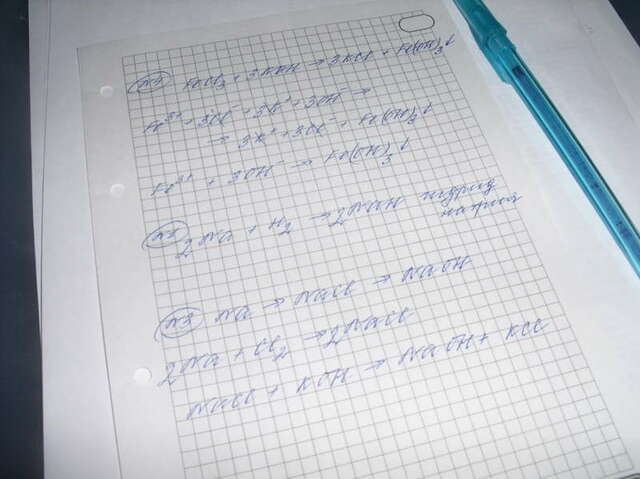 №1 FeCl3 + 3KOH → 3KCl + Fe(OH)3↓
Fe3+ + 3Cl- + 3K+ + 3OH- →
→ 3K+ + 3Cl- + Fe(OH)3↓
Fe3+ + 3OH- → Fe(OH)3↓
№2 2Na + H2 → 2NaH гидрид
натрия
№3 Na → NaCl → NaOH
2Na + Cl2 → 2NaCl
NaCl + KOH → NaOH + KCl